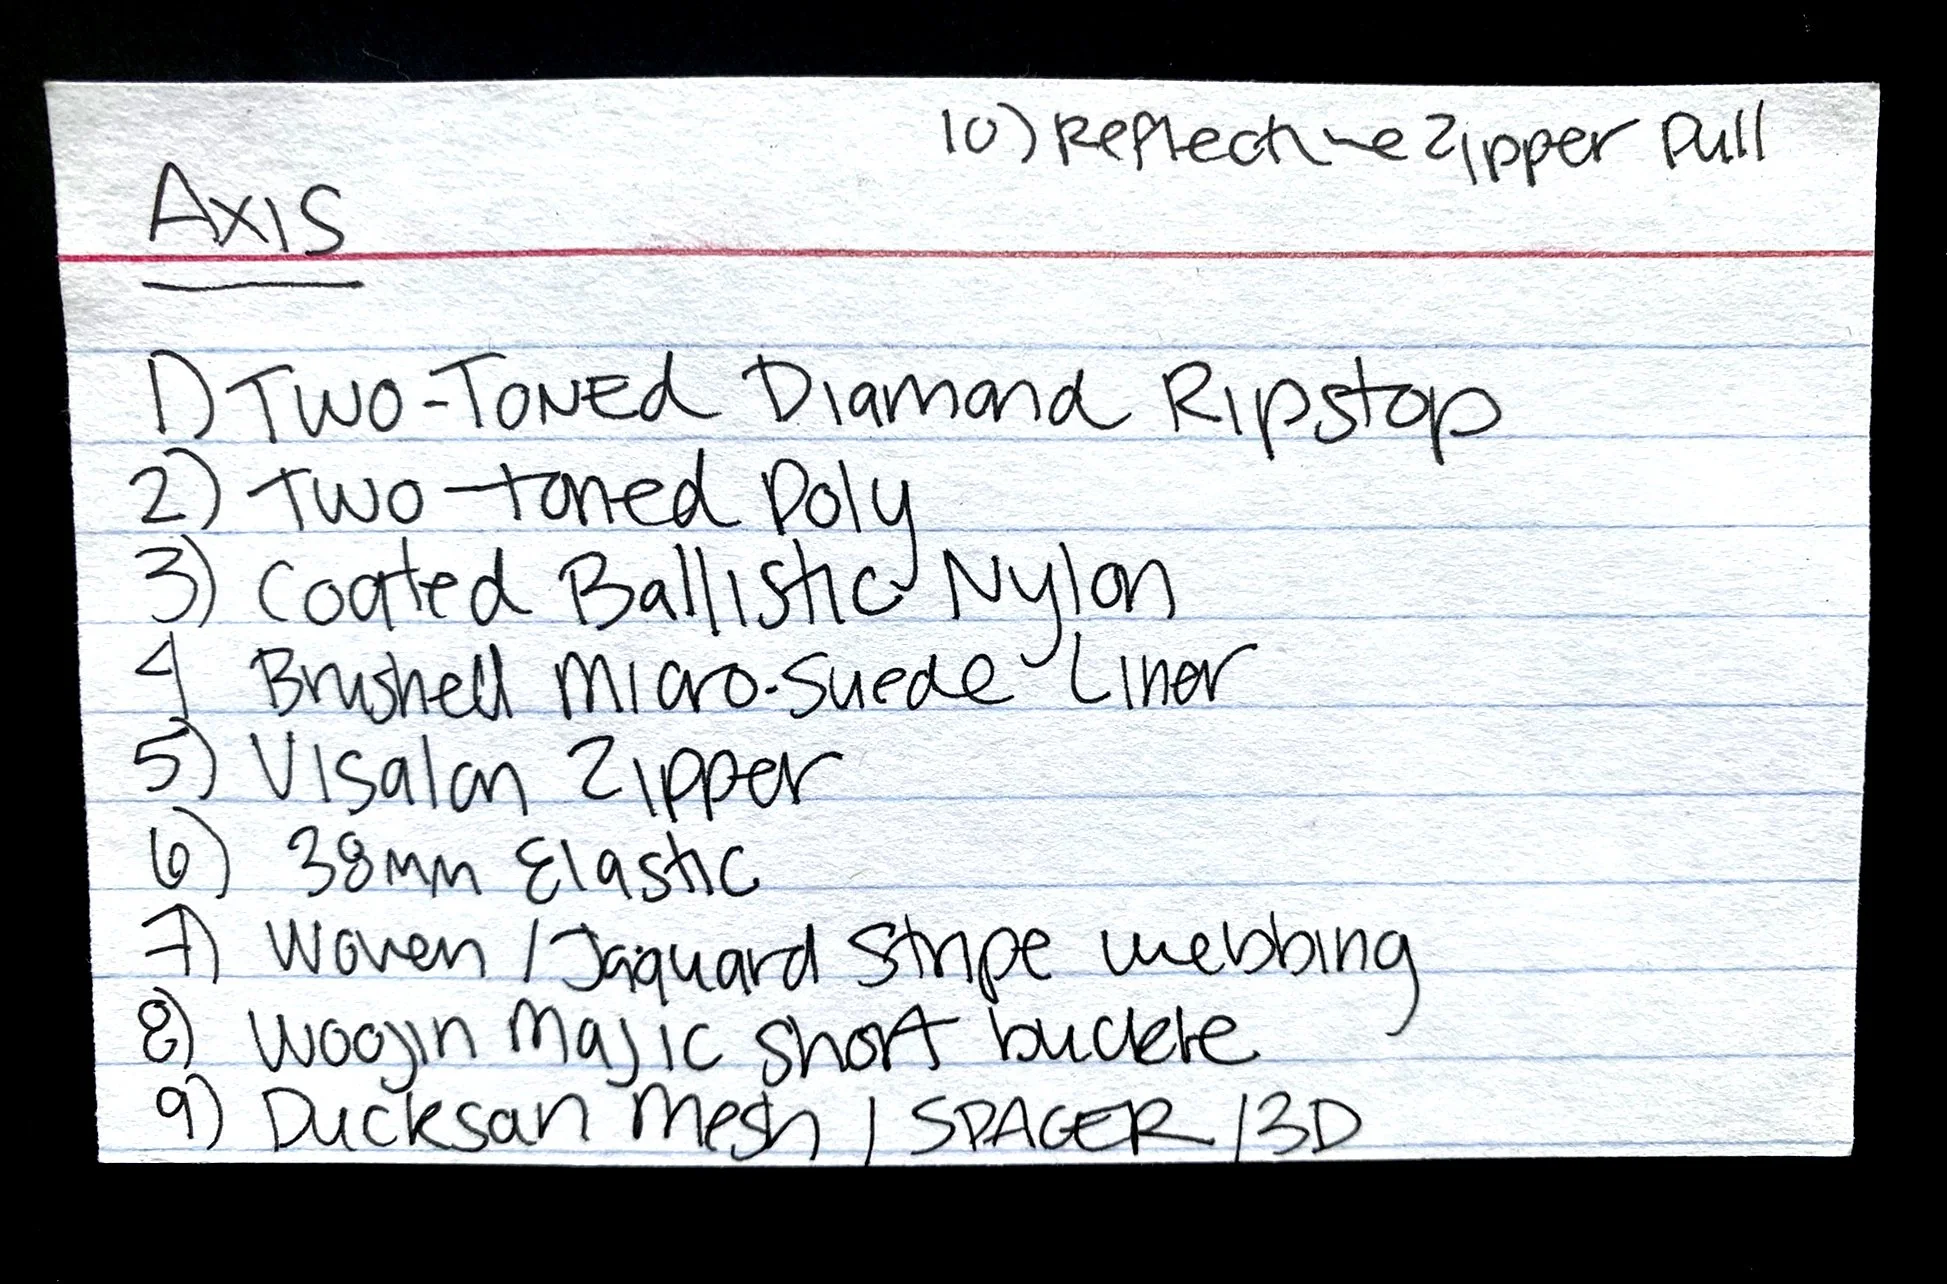 10) Reflective Zipper Pull
Axis
1) Two-Toned Diamond Ripstop
2) Two-toned Poly
3) Coated Ballistic Nylon
4 Brushed Micro-Suede Liner
5) Visalon Zipper
6) 38mm Elastic
7) Woven / Jaquard Stripe webbing
8) Woojin Majic short buckle
9) Ducksan Mesh / SPACER / 3D